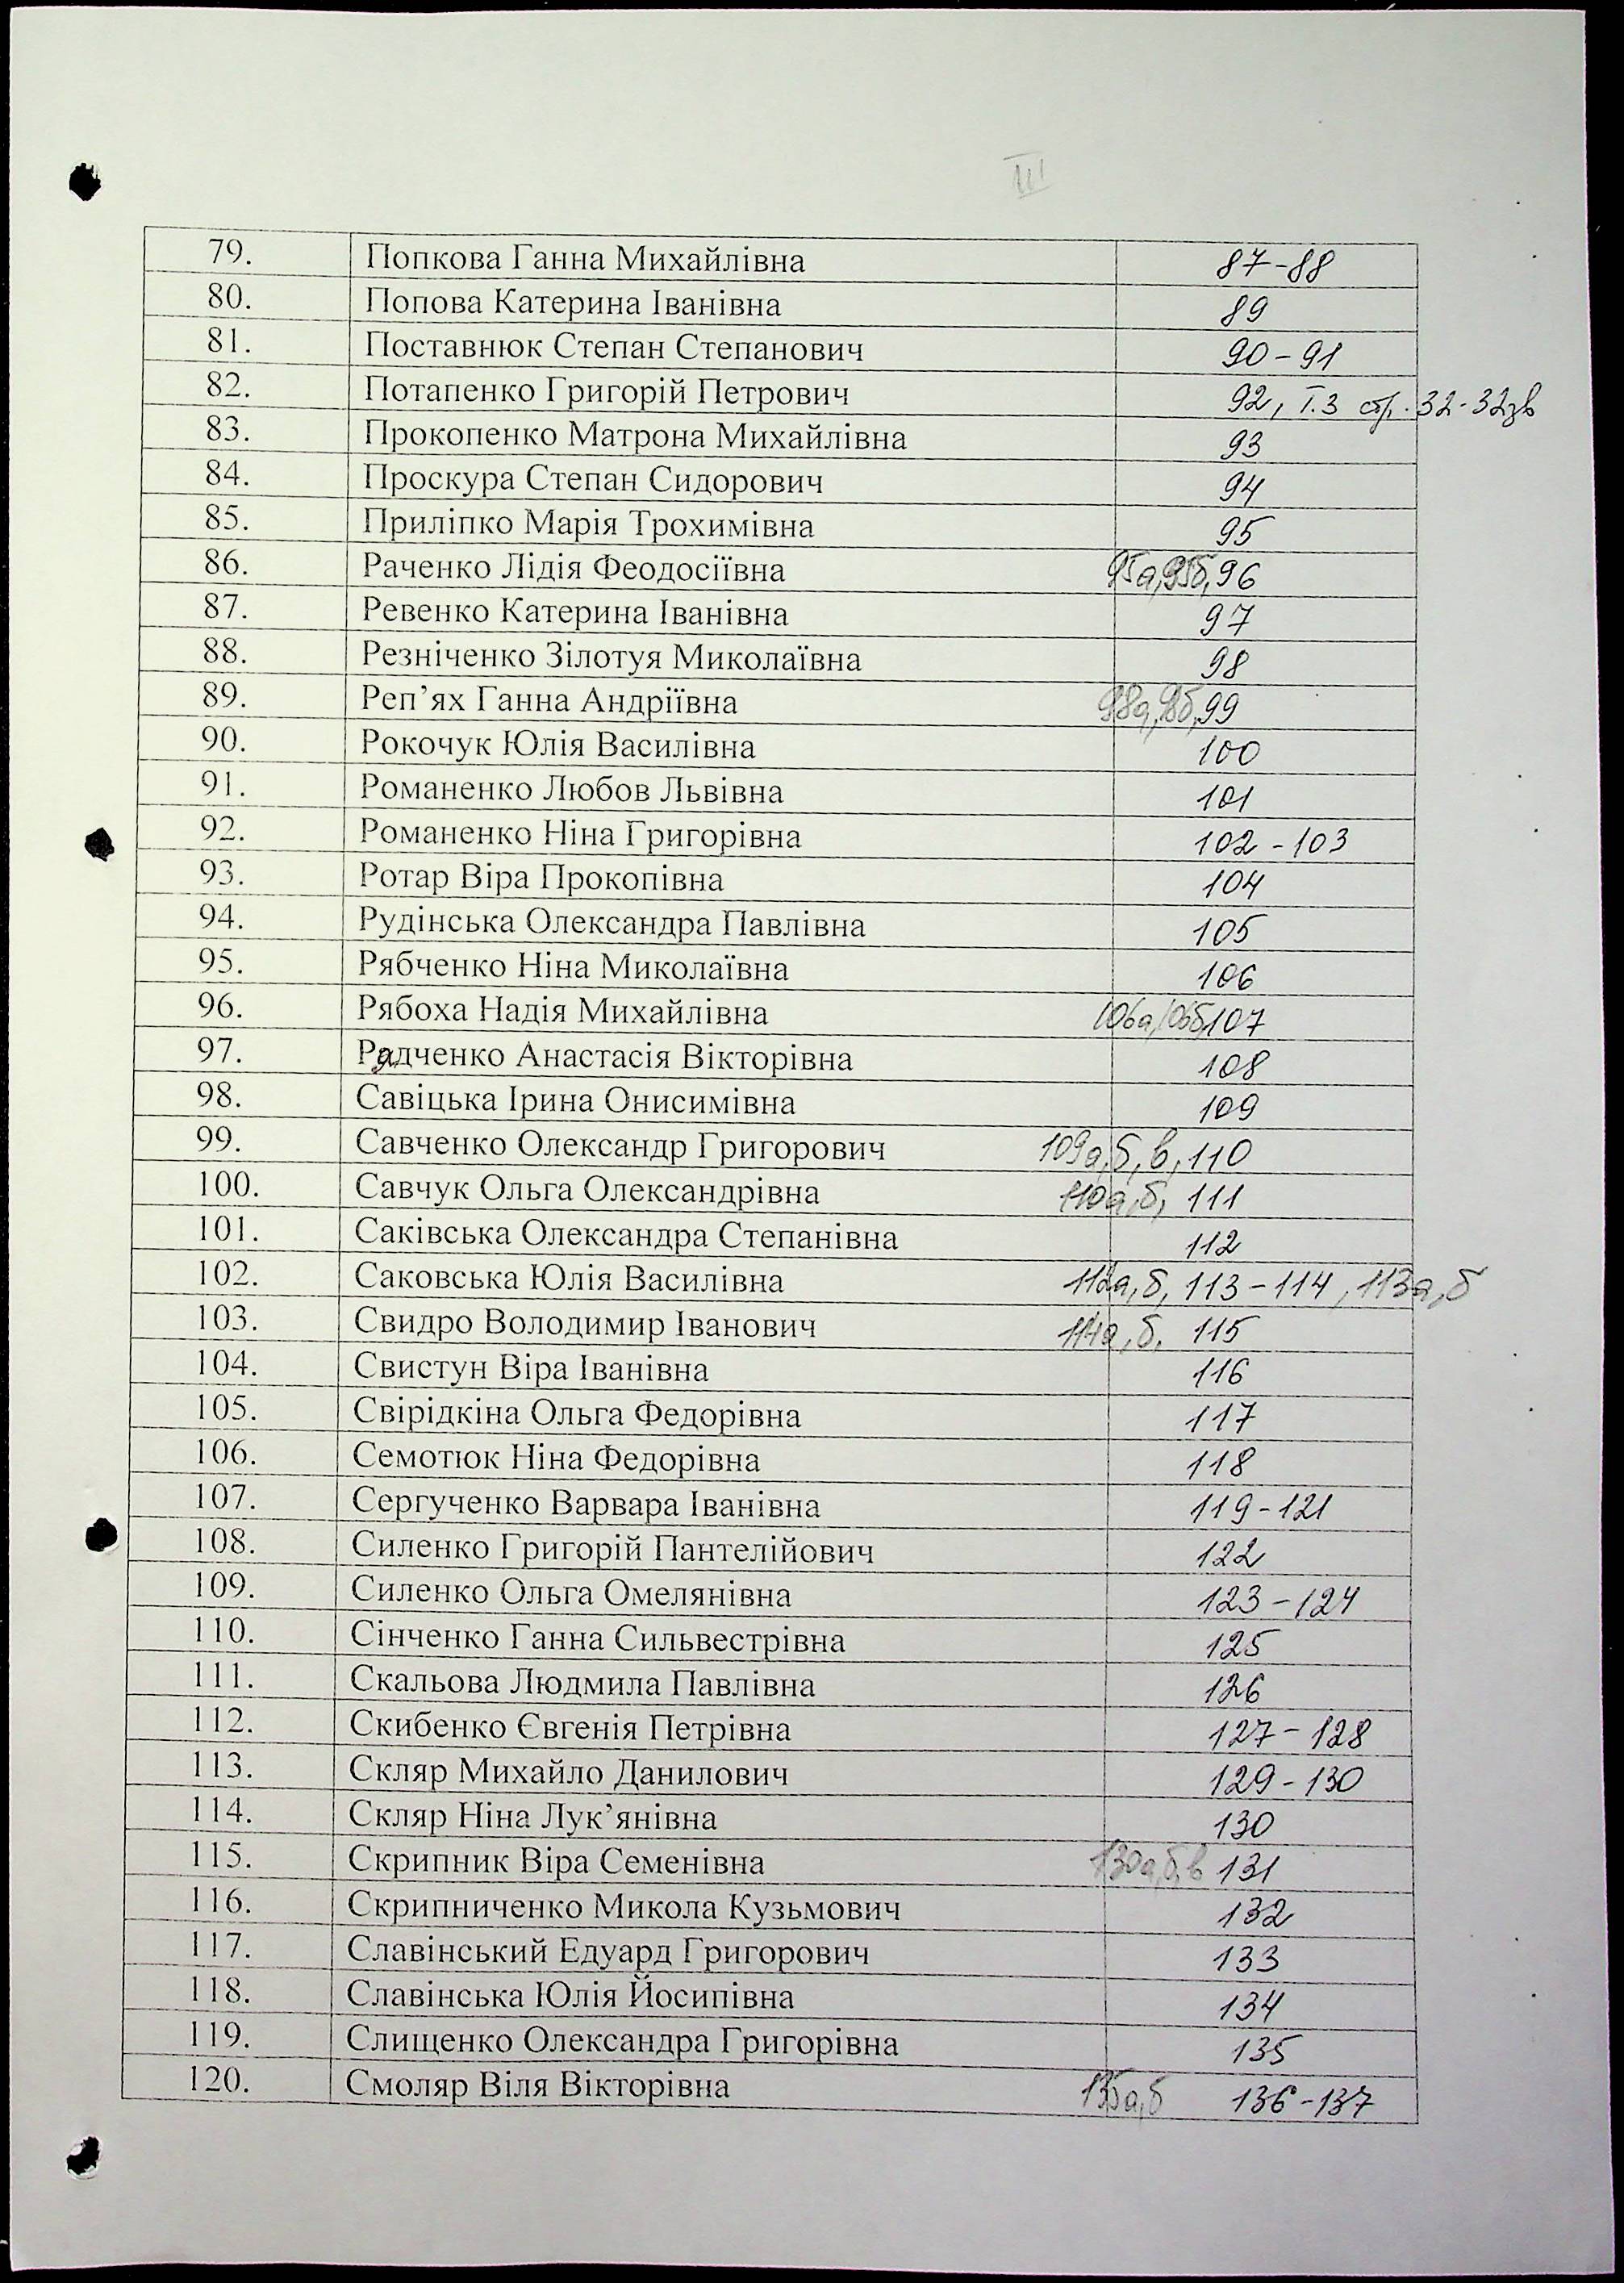 III
79. Попкова Ганна Михайлівна 87-88
80. Попова Катерина Іванівна 89
81. Поставнюк Степан Степанович 90-91
82. Потапенко Григорій Петрович 92, Т.3 стр. 32-32зв
83. Прокопенко Матрона Михайлівна 93
84. Проскура Степан Сидорович 94
85. Приліпко Марія Трохимівна 95
86. Раченко Лідія Феодосіївна 95а,95б,96
87. Ревенко Катерина Іванівна 97
88. Резніченко Зілотуя Миколаївна 98
89. Реп’ях Ганна Андріївна 98а,98б,99
90. Рокочук Юлія Василівна 100
91. Романенко Любов Львівна 101
92. Романенко Ніна Григорівна 102-103
93. Ротар Віра Прокопівна 104
94. Рудінська Олександра Павлівна 105
95. Рябченко Ніна Миколаївна 106
96. Рябоха Надія Михайлівна 106а,106б,107
97. Радченко Анастасія Вікторівна 108
98. Савіцька Ірина Онисимівна 109
99. Савченко Олександр Григорович 109а,б,в,110
100. Савчук Ольга Олександрівна 110а,б, 111
101. Саківська Олександра Степанівна 112
102. Саковська Юлія Василівна 112а,б, 113-114, 113а,б
103. Свидро Володимир Іванович 114а,б. 115
104. Свистун Віра Іванівна 116
105. Свірідкіна Ольга Федорівна 117
106. Семотюк Ніна Федорівна 118
107. Сергученко Варвара Іванівна 119-121
108. Силенко Григорій Пантелійович 122
109. Силенко Ольга Омелянівна 123-124
110. Сінченко Ганна Сильвестрівна 125
111. Скальова Людмила Павлівна 126
112. Скибенко Євгенія Петрівна 127-128
113. Скляр Михайло Данилович 129-130
114. Скляр Ніна Лук’янівна 130
115. Скрипник Віра Семенівна 130а,б,в 131
116. Скрипниченко Микола Кузьмович 132
117. Славінський Едуард Григорович 133
118. Славінська Юлія Йосипівна 134
119. Слищенко Олександра Григорівна 135
120. Смоляр Віля Вікторівна 135а,б 136-137